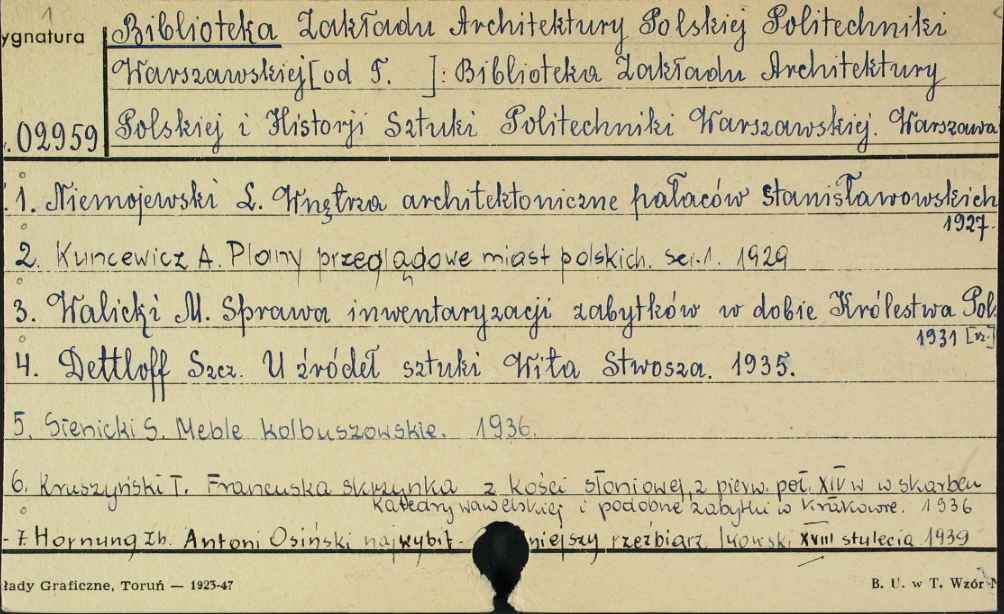 1
ygnatura
Biblioteka Zakładu Architektury Polskiej Politechniki
Warszawskiej [od T. ]: Biblioteka Zakładu Architektury
02959
Polskiej i Historji Sztuki Politechniki Warszawskiej. Warszawa
1. Niemojewski L. Wnętrza architektoniczne pałaców stanisławowskich
1927.
2. Kuncewicz A. Plany przeglądowe miast polskich. Ser.1. 1929
3. Walicki M. Sprawa inwentaryzacji zabytków w dobie Królestwa Pol.
1931 [rz.]
4. Dettloff Szcz. U źródeł sztuki Wita Stwosza. 1935.
5. Sienicki S. Meble kolbuszowskie. 1936.
6. Kruszyński T. Francuska skrzynka z kości słoniowej, z pierw. poł. XIV w w skarbcu
Katedry wawelskiej i podobne zabytki w Krakowie. 1936
7. Hornung Zb. Antoni Osiński najwybit- niejszy rzeźbiarz lwowski XVIII stulecia 1939
łady Graficzne, Toruń — 1923-47
B. U. w T. Wzór N